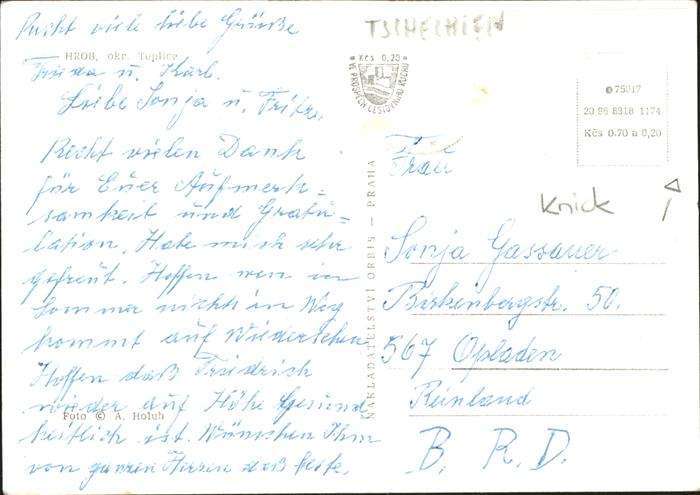 Recht viele liebe Grüsse
TSCHECHIEN
HROB, okr. Teplice
Frieda u. Karl.
Liebe Sonja u. Fritz,
Recht vielen Dank
für Euer Aufmerk=
samkeit und Gratu=
lation. Habe mich sehr
gefreut. Hoffen wen im
Sommer nichts in Weg
kommt auf Wiedersehen
Hoffen daß Friedrich
wieder auf Höhe Gesund
heitlich ist. Wünschen Ihm
von ganzen Herzen daß beste.
Foto © A. Holub
Kčs 0,20
VE PROSPĚCH CESTOVNÍHO RUCHU
NAKLADATELSTVÍ ORBIS — PRAHA
75/J17
20 06 6318 1174
Kčs 0.70 a 0,20
Knick
Frau
Sonja Gassauer
Birkenbergstr. 50.
567 Opladen
Reinland
B. R. D.